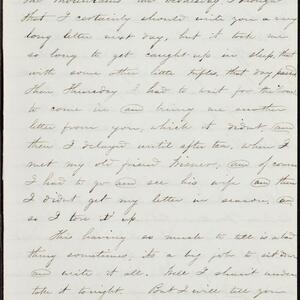 the mountains last Wednesday I thought
that I certainly should write you a very
long letter next day, but it took me
so long to get caught up in sleep, that
with some other little trifles, that day passed
Then Thursday I had to wait for the
to come in and bring me another
letter from you, which it didnt, and
then I delayed until after tea, when I
met my old friend and of course
I had to go and see his wife and then
I didnt get my letter in season, and
so I tore it up
This having so much to tell is a bad
thing sometimes, its a big job to sit down
and write it all. Well I shant under
take it tonight. But I will tell you